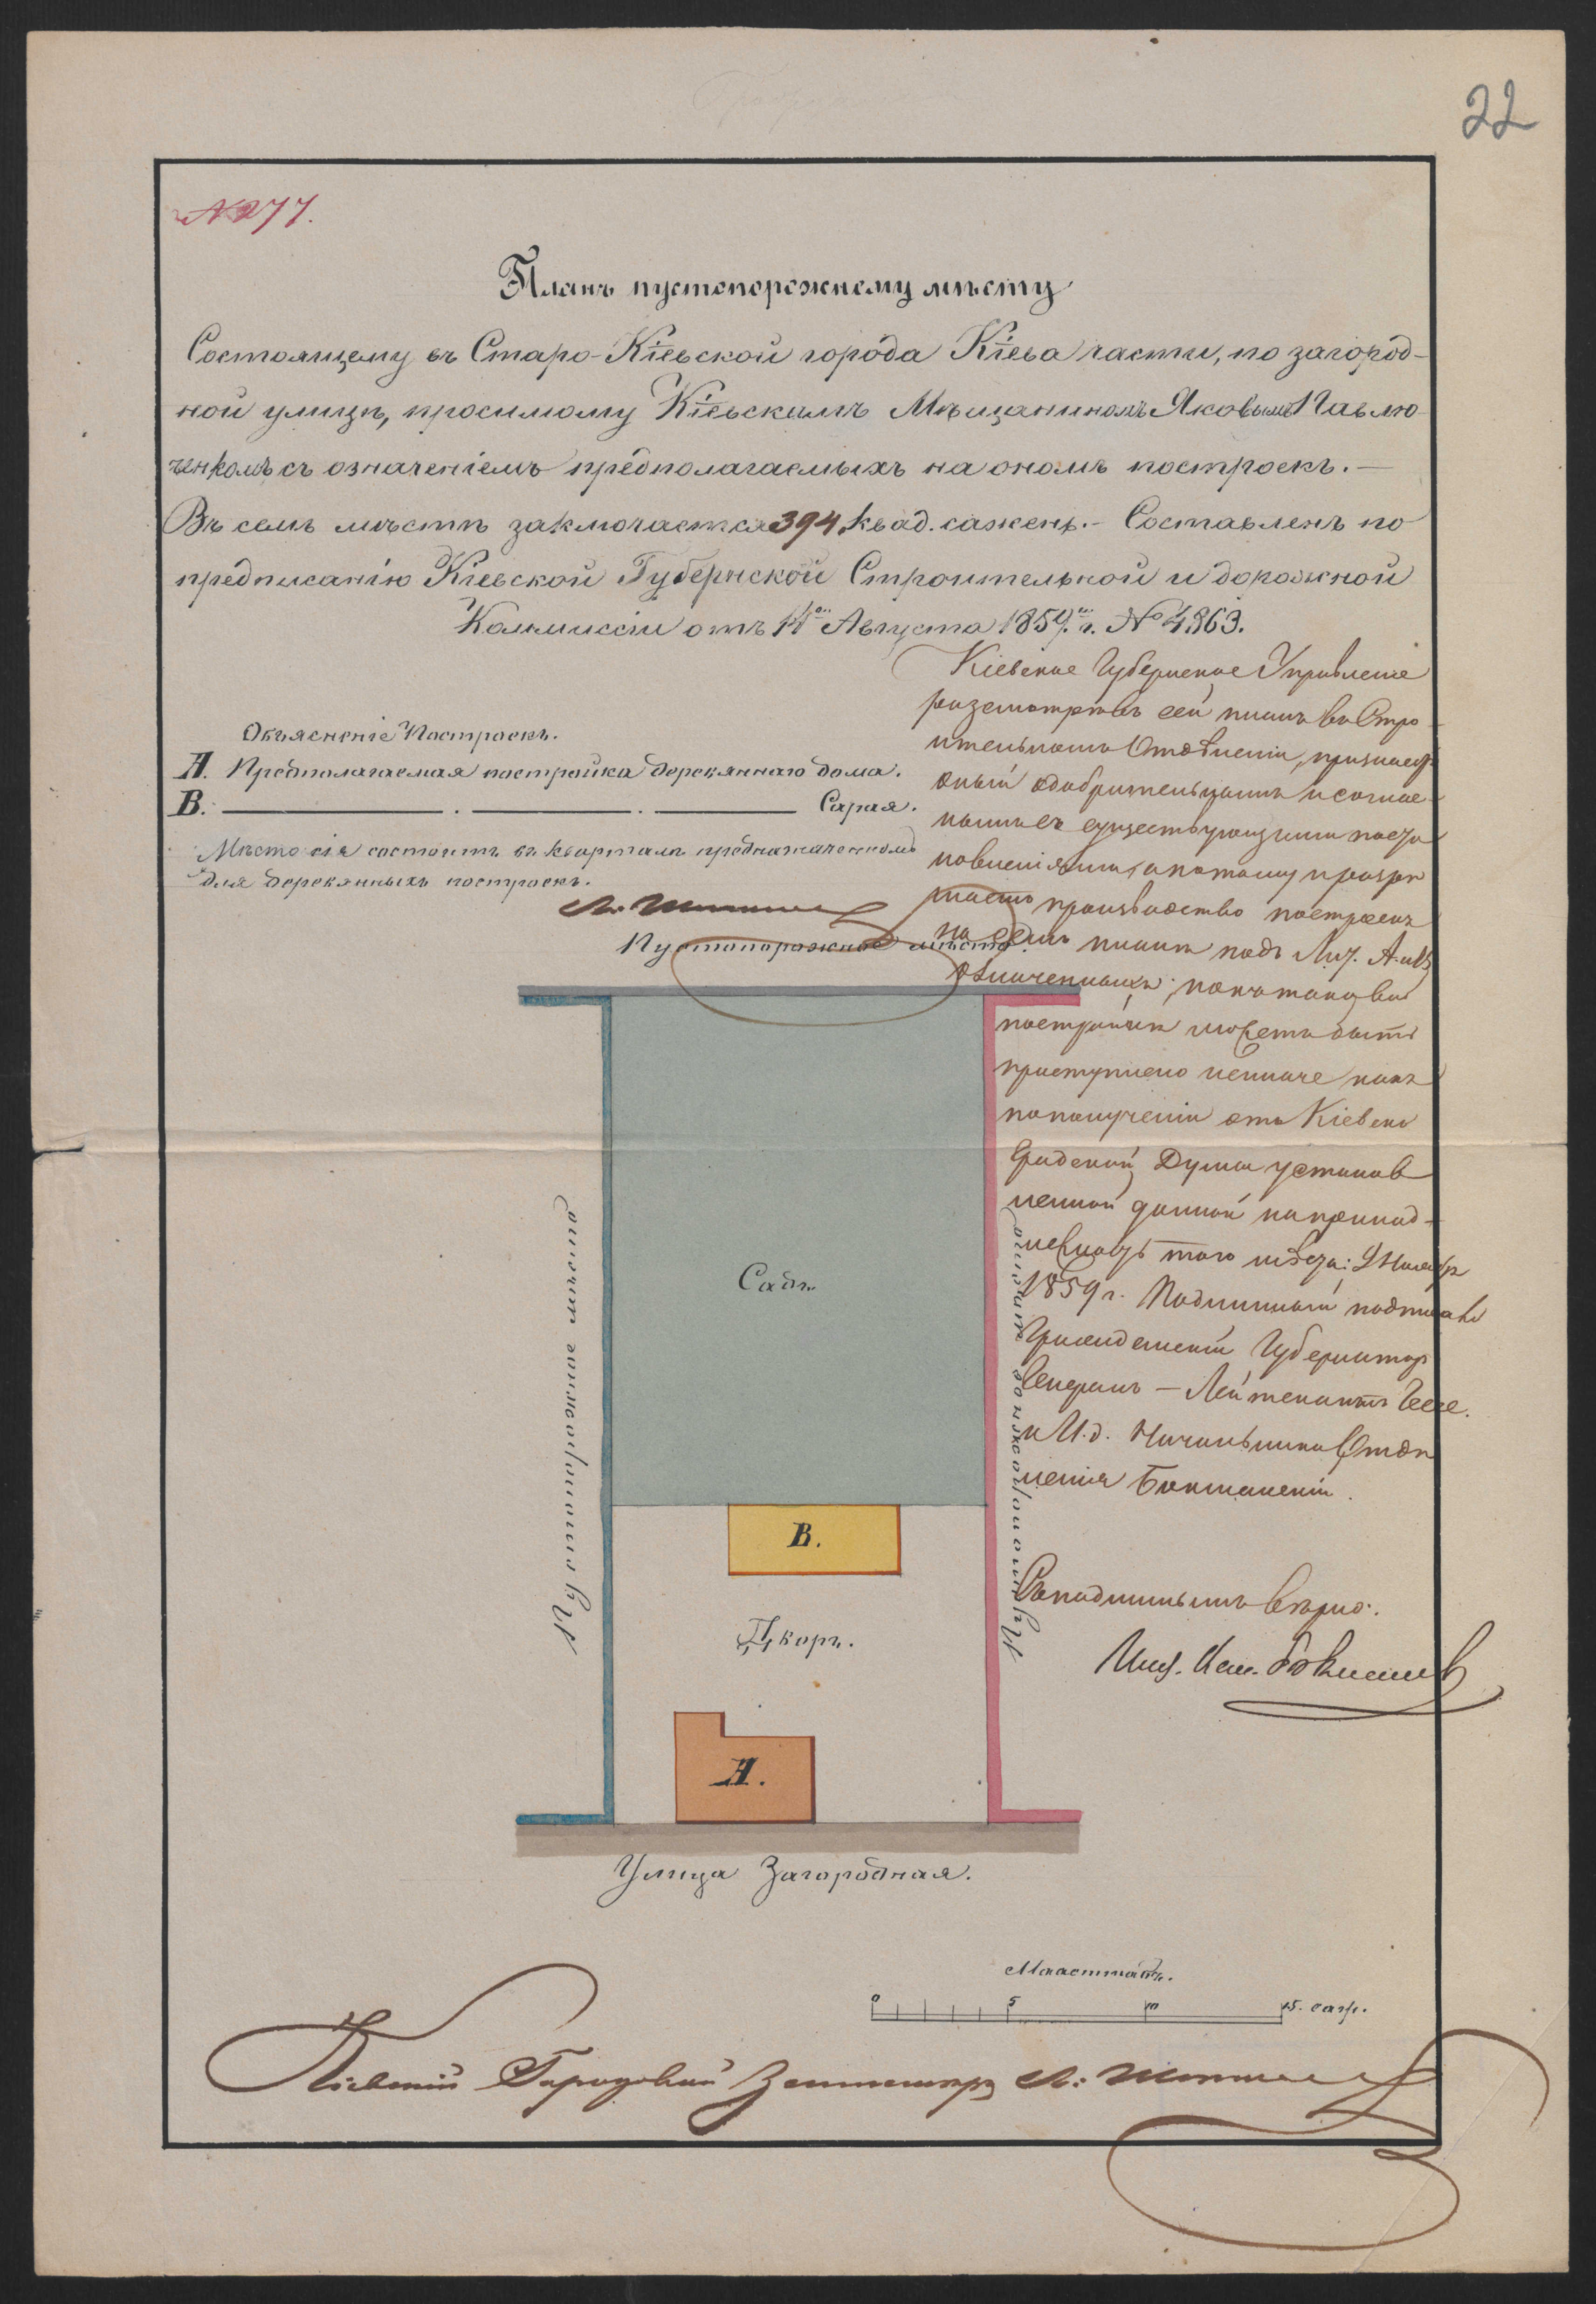 22
№ 277.
Планъ пустопорожнему мѣсту
Состоящему въ Старо-Кіевской города Кіева части, по загород-
ной улицѣ, просимому Кіевскимъ Мѣщаниномъ Яковымъ Павлю
ченкомъ съ означеніемъ предполагаемыхъ на ономъ построекъ.—
Въ семъ мѣстѣ заключается 394 квад. сажень.- Составленъ по
предписанію Кіевской Губернской Строительной и дорожной
Коммиссіи отъ 14го Августа 1859го г. № 4863.
Объясненіе Построекъ.
А. Предполагаемая постройка деревяннаго дома.
В. —— . —— . —— Сарая.
Мѣсто сіе состоитъ въ кварталѣ предназначенномъ
для деревянныхъ построекъ.
Кіевское Губернское Управленіе
разсмотрѣвъ сей планъ въ Стро
ительномъ Отдѣленіи, признаетъ
оный одобрительнымъ и соглас
нымъ съ существующими поста
новленіями, а потому разрѣ
шаетъ производство построекъ
на семъ планѣ подъ Лит. А. и В.
означенныхъ; но къ таковой
постройкѣ можетъ быть
приступлено неиначе какъ
по полученіи отъ Кіевской
Градской Думы установ
ленной данной на принад-
лежность того мѣста: Ноября
1859 г. Подлинный подписали
Гражданскій Губернаторъ
Генералъ - Лейтенантъ Гессе.
и И.д. Начальника Отдѣ
ленія
Съ подлиннымъ вѣрно:
Пустопорожнее мѣсто.
Пустопорожнее мѣсто
Пустопорожнее мѣсто
Садъ.
В.
Дворъ.
А.
Улица Загородная.
Масштабъ.
0 5 10 15. саж.
Кіевскій Городовой Землемѣръ